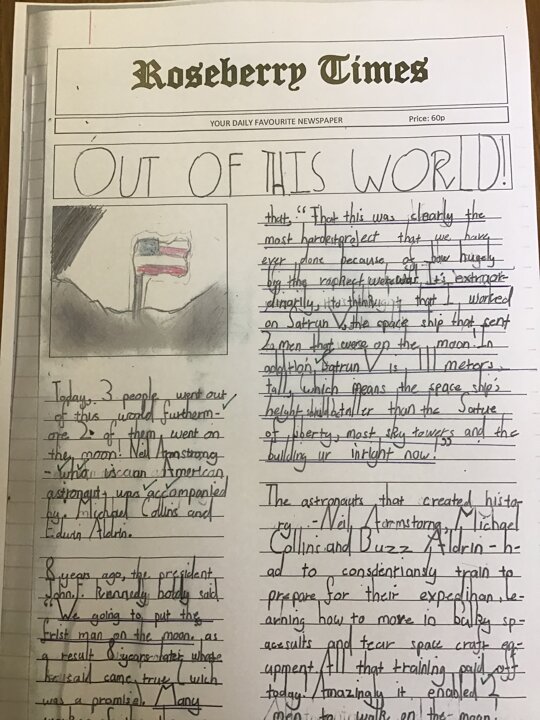 Roseberry Times
YOUR DAILY FAVOURITE NEWSPAPER Price: 60p
OUT OF THIS WORLD!
Today, 3 people went out
of this world furtherm-
ore 2 of them went on
the moon! Neil Armstrong
- who is an American
astronaut - was accompanied
by Michael Collins and
Edwin Aldrin.
8 years ago, the president
John.f. Kennedy boldy said
"We going to put the
frist man on the moon. as
a result 8 years later whate
he said came true (wich
was a promise). Many
that, "That this was clearly the
most hardest project that we have
ever done because of how hugely
big the rocket was. It's extraor-
dinarily, to think that I worked
on Satrun V, the space ship that sent
2 men that were on the moon. In
addition, Satrun V is 111 meters
tall, which means the space ship's
height taller than the Satue
of liberty, most sky towers and the
building ur in right now!"
The astronauts that created histo-
ry - Neil Armstorng, Michael
Collins and Buzz Aldrin - h-
ad to consdentiansly train to
prepare for their expedihan, le-
arning how to move in bulky sp-
acesuits and tear space craft eq-
uipment. All that training paid off
today. Amazingly it enabled 2
men to walk on the moon.